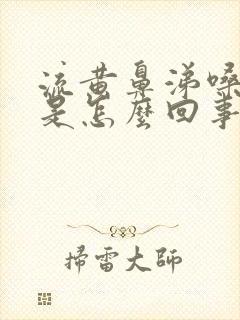 流黄鼻涕嗓
是怎麼回事
掃雷大師